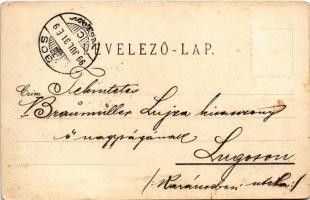 LEVELEZŐ-LAP.
LUGOS
99 JUL. 31. É 9
Czím:
Tekintetes
Braunmüller Lujza kisasszony
ő nagyságának
Lugoson
/: Karánsebesi utcza :/